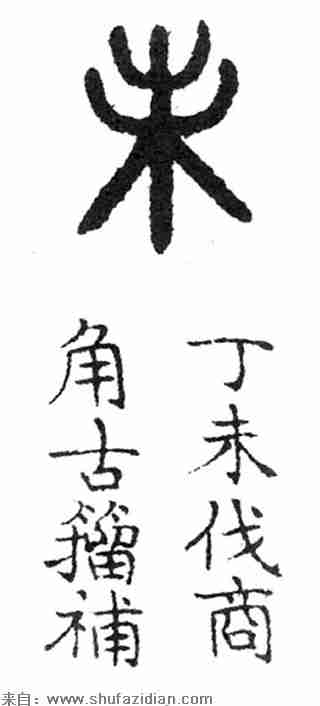 未
丁未伐商
角古籀補
来自：www.shufazidian.com